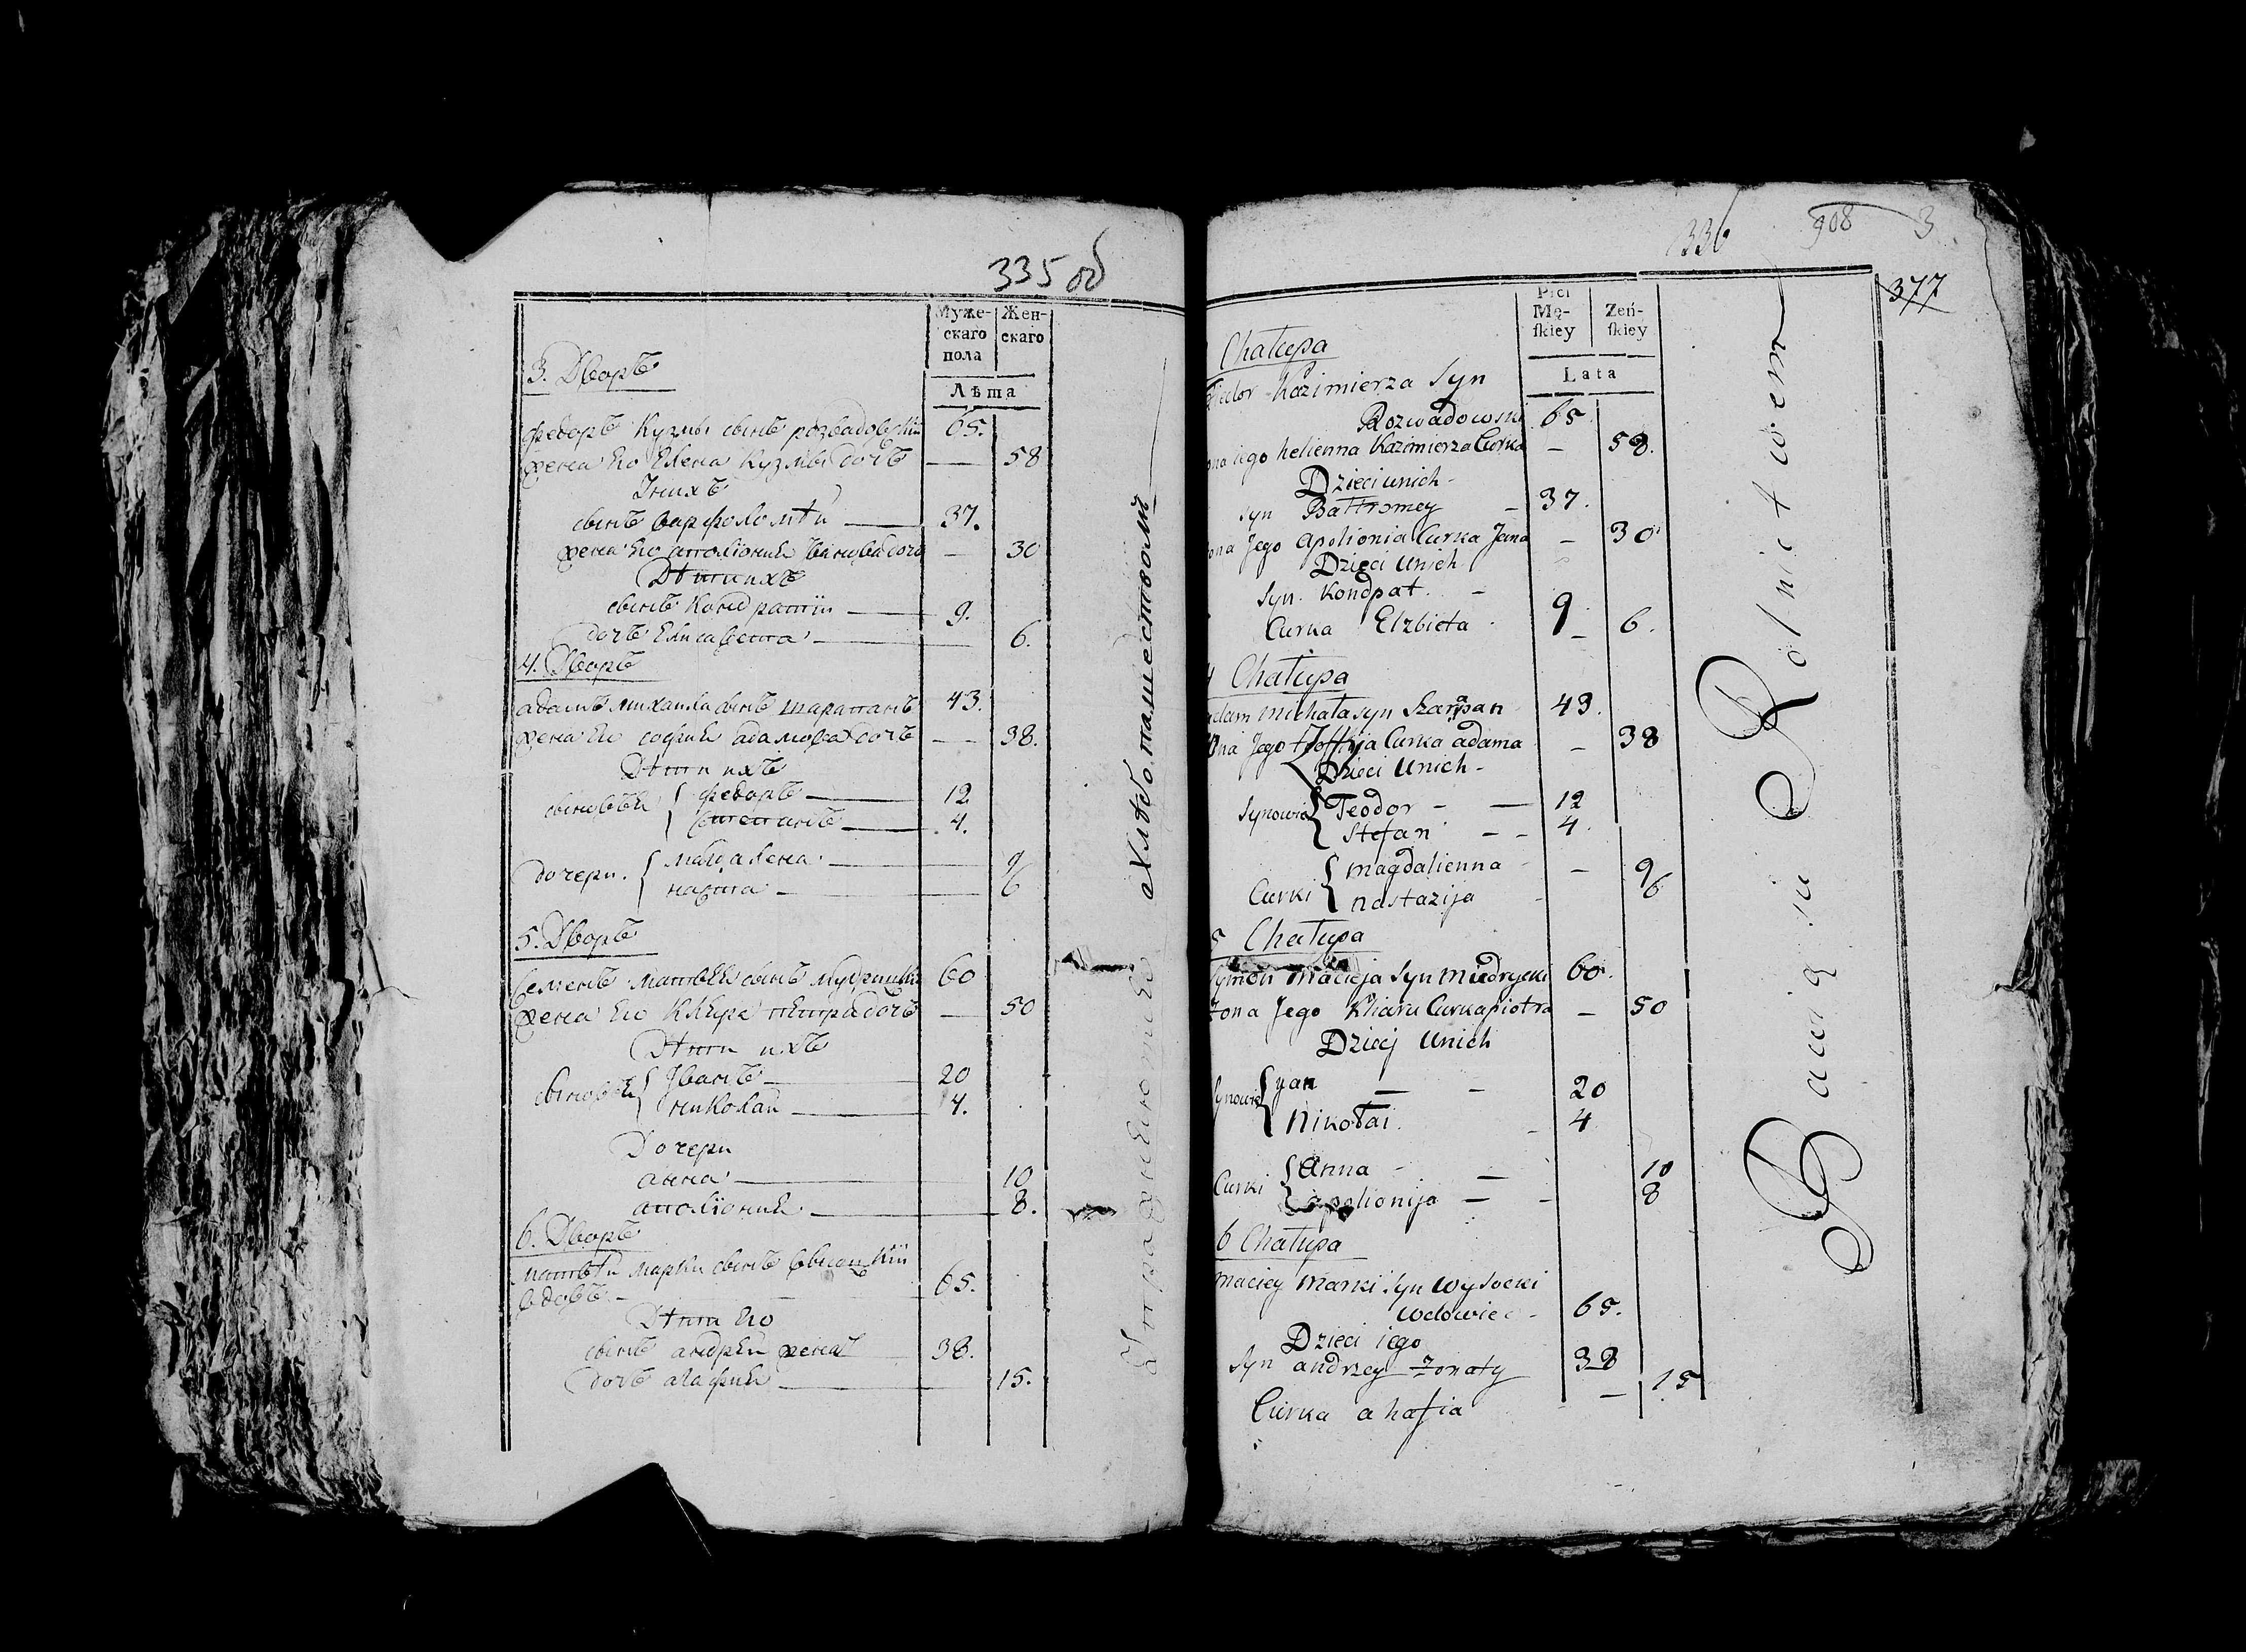 335 об
Муже-
скаго
пола
Жен-
скаго
Лѣта
3. Дворъ
федоръ Кузмы сынъ розвадовскій 65.
жена его Елена Кузмы дочь — 58
У нихъ
сынъ варфоломѣй — 37.
жена его аполіонія Иванова дочь — 30
Дѣти ихъ
сынъ Кондратій — 9.
дочь Елисавета — 6.
4. Дворъ
адамъ михаила сынъ шарапанъ 43.
жена его софия адамова дочь — 38.
Дѣти ихъ
сыновья { федоръ — 12
Степанъ — 4.
дочери. { магдалена — 9
настя — 6
5. Дворъ
Семенъ матвея сынъ мудрицкій 60
жена его Клера петра дочь — 50
Дѣти ихъ
сыновья { Иванъ — 20
николай — 4.
Дочери
анна — 10
аполіония — 8.
6. Дворъ
матвѣй марки сынъ высоцкій
вдовъ — 65.
Дѣти его
сынъ андрей женатъ 38.
дочь агафия — 15.
Упражняютца хлѣбопашествомъ
336 908 3
377
Płci
Mę-
skiey
Zeń-
skiey
Lata
Chałupa
Kazimierza Syn
Rozwadowski 65
iego helienna Kazimierza Curka — 58.
Dzieci unich
syn Bałtromey — 37.
Jego apolionia Curka Jana — 30
Dzieci Unich
Syn Kondpat — 9
Curka Elzbieta — 6.
4 Chałupa
adam michała syn Szarapan 43.
żona Jego Zoffija Curka adama — 38
Dzieci Unich
Synowie { Teodor — 12
Stefan — 4
Curki { magdalienna — 9
nastazija 6
5 Chałupa
Symon macieja Syn mudrycki 60.
żona Jego Kliara Curka piotra — 50
Dzieci Unich
Synowie { yan — 20
Nikołai — 4
Curki { anna — 10
apolionija — 8
6 Chałupa
maciey marki Syn wysocki
wdowiec 65.
Dzieci iego
Syn andrzey żonaty 38
Curka ahafia — 15
Bawią się Rolnictwem